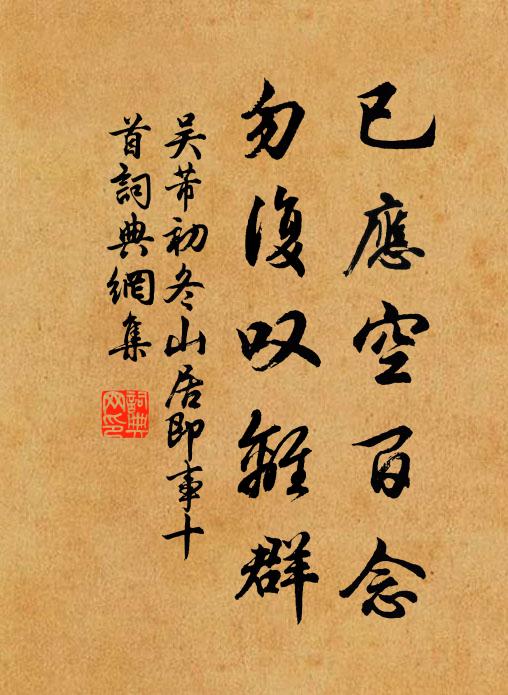 已應空百念
勿復叹離群
吴芾初冬山居即事十
首詞典網集
詞典
网印